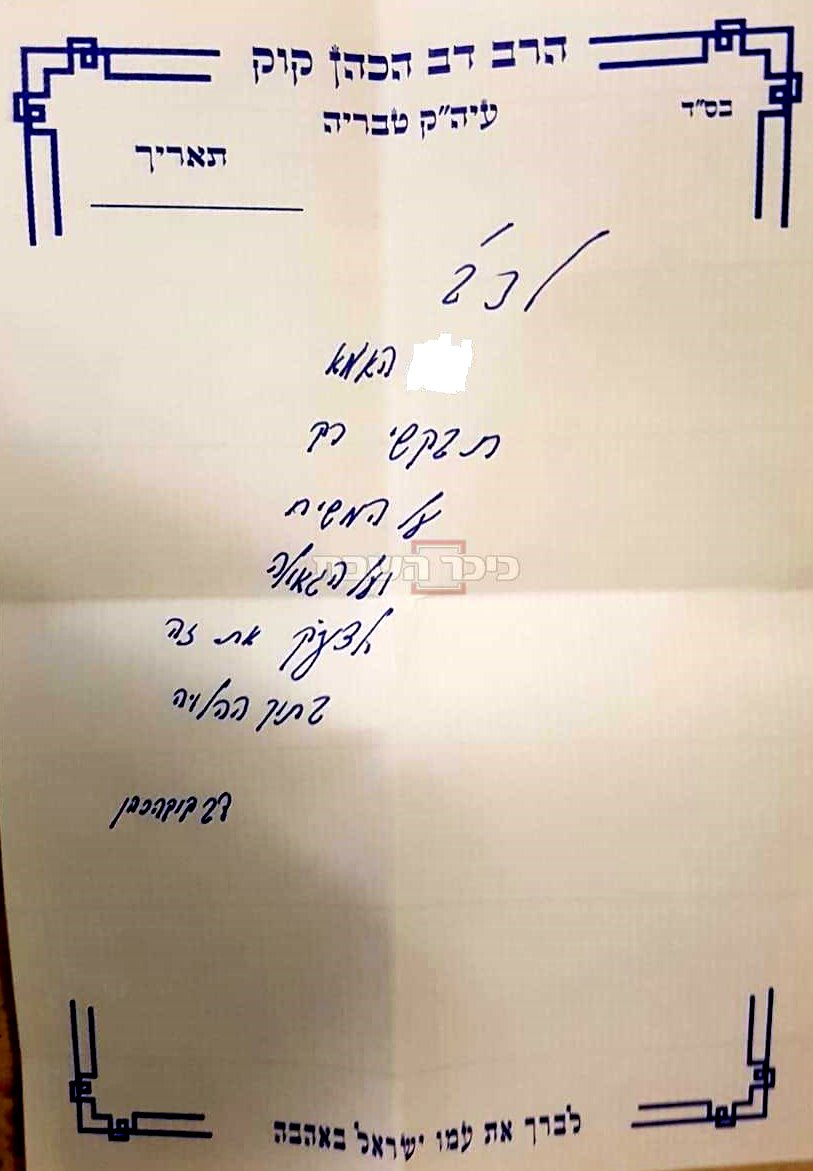 הרב דב הכהן קוק
עיה"ק טבריה
בס"ד
תאריך
לכב'
האמא
תבקשי רק
על המשיח
ועל הגאולה
לצעוק את זה
בתוך ההלויה
דב קוק הכהן
כיכר השבת
לברך את עמו ישראל באהבה